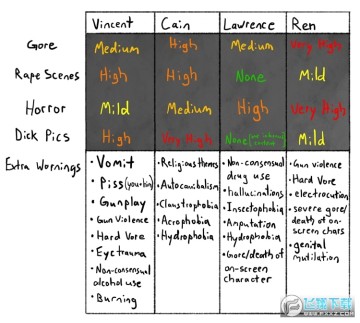 Vincent Cain Lawrence Ren
Gore Medium High Medium Very High
Rape Scenes High High None Mild
Horror Mild Medium High Very High
Dick Pics High Very High None Mild
Extra Warnings
• Vomit
• Piss (you+him)
• Gunplay
• Gun Violence
• Hard Vore
• Eye trauma
• Non-consensual
alcohol use
• Burning
• Religious themes
• Autocanibalism
• Claustrophobia
• Acrophobia
• Hydrophobia
• Non-consensual
drug use
• hallucinations
• Insectophobia
• Amputation
• Hydrophobia
• Gore/death of
on-screen
character
• Gun violence
• Hard Vore
• electrocution
• severe gore/
death of on-
screen chars
• genital
mutilation